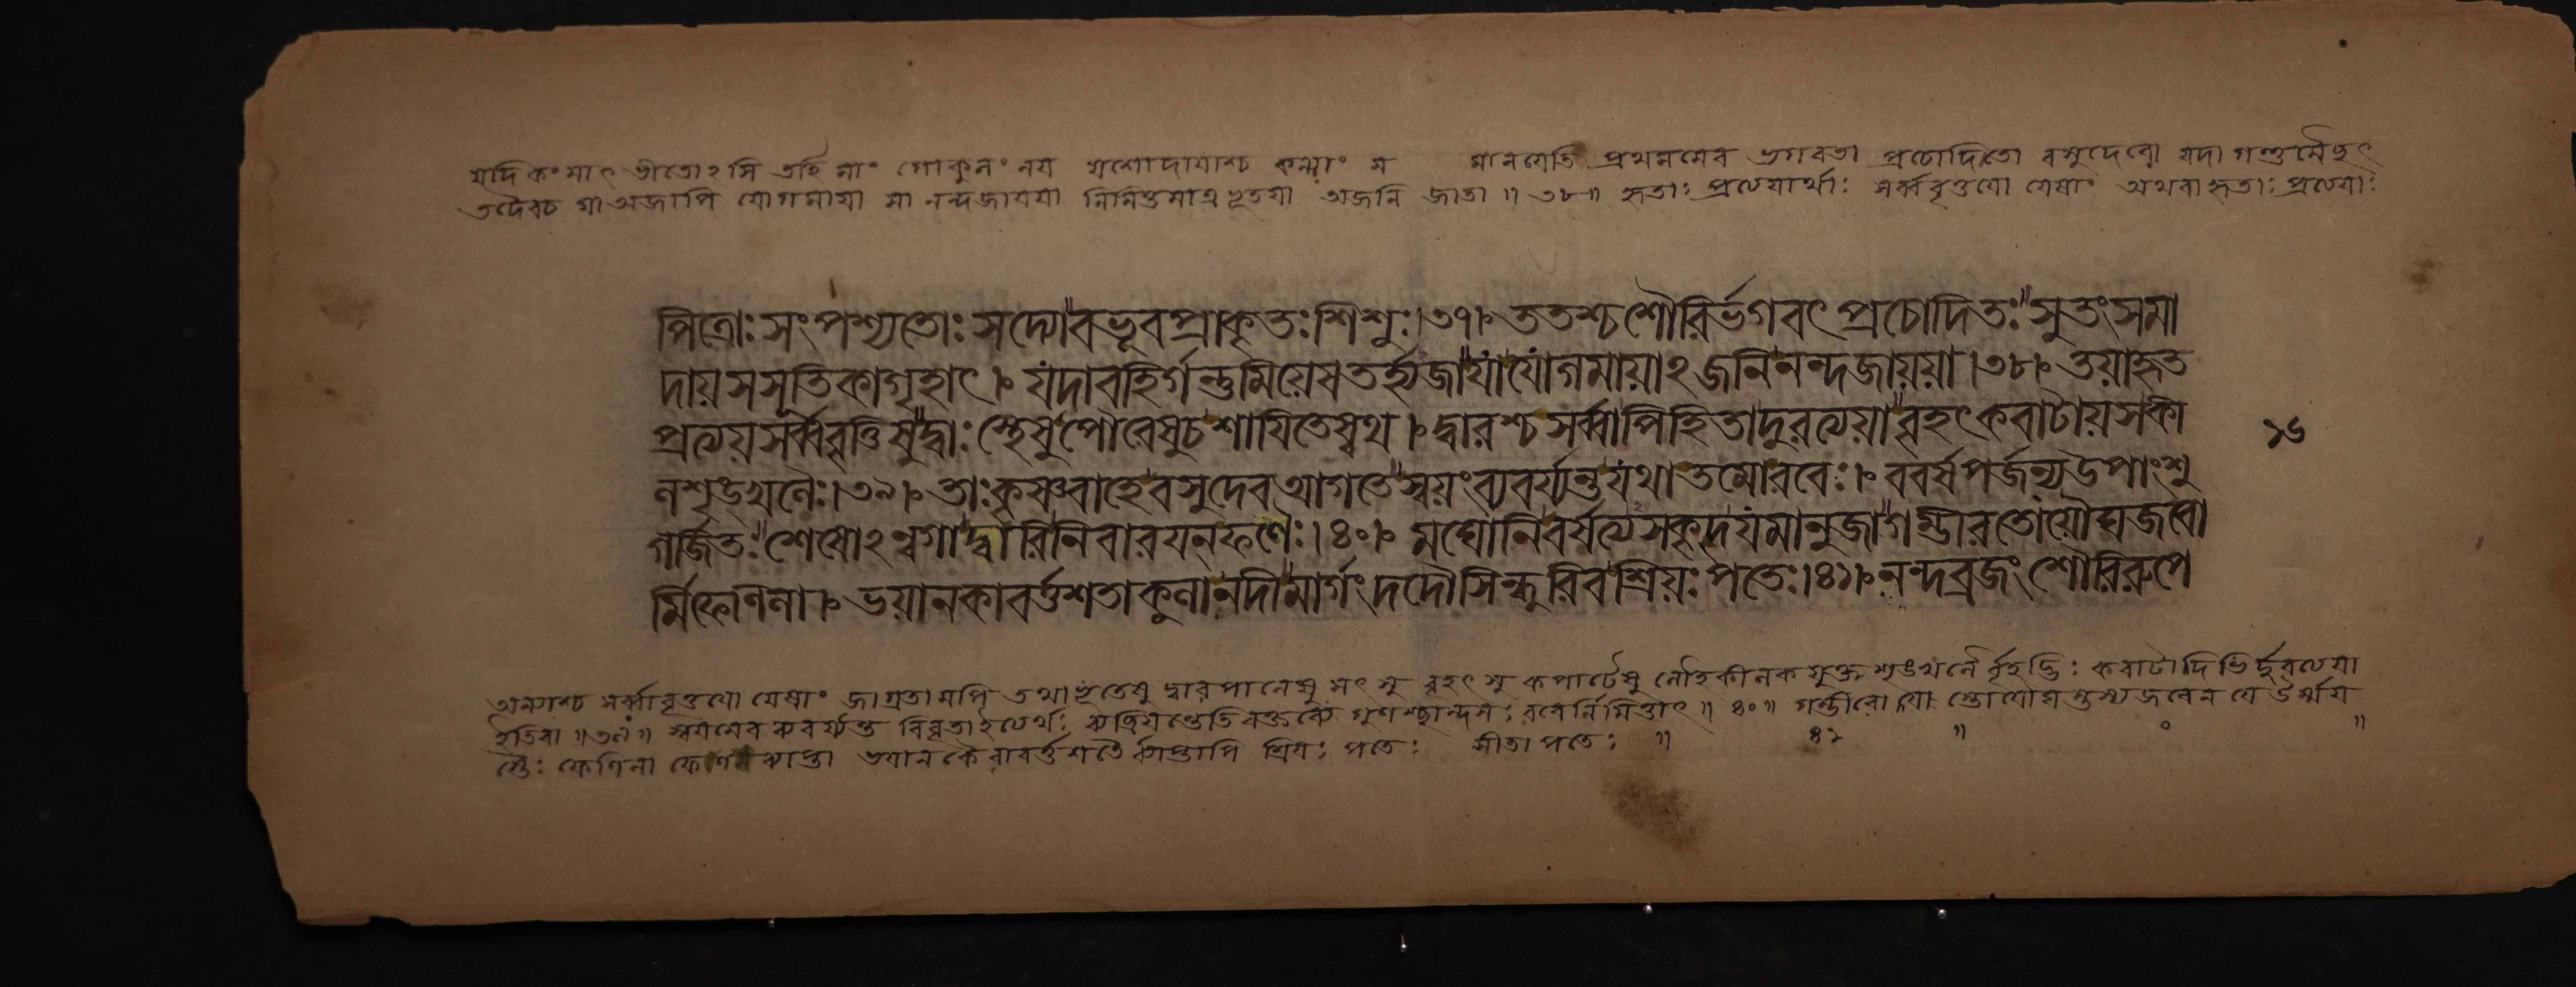 যদি কংসাৎ ভীতোঽসি তর্হি মাং গোকুলং নয় যশোদায়াশ্চ কন্যাং ম মানয়েতি প্রথমমেব ভগবতা প্রচোদিতো বসুদেবো যদা গন্তুমৈছৎ
তদৈবচ যা অজাপি যোগমায়া সা নন্দজায়য়া নিমিত্তমাত্রভূতয়া অজনি জাতা ॥ ৩৮॥ হৃতাঃ প্রত্যয়ার্থাঃ সর্ব্ববৃত্তয়ো যেষাং অথবা হৃতাঃ প্রত্যয়াঃ
পিত্রোঃ সংপশ্যতোঃ সদ্যোবভূবপ্রাকৃতঃ শিশুঃ।৩৭। ততশ্চশৌরির্ভগবৎ প্রচোদিতঃ সুতংসমা
দায়সসূতিকাগৃহাৎ। যদাবহির্গন্তুমিয়েষতর্হ্যজাযাযোগমায়াঽজনিনন্দজায়য়া।৩৮। তয়াহৃত
প্রত্যয়সর্ব্ববৃত্তিষুদ্বাঃস্থেষুপৌরেষুচশায়িতেষ্বথ। দ্বারশ্চসর্ব্বাপিহিতাদুরত্যয়াবৃহৎকবাটায়সকী
লশৃঙ্খলৈঃ।৩৯। তাঃকৃষ্ণবাহেবসুদেবআগতেস্বয়ংব্যবর্য্যন্তযথাতমোরবেঃ। ববর্ষপর্জন্যউপাংশু
গর্জিতঃশেষোঽন্বগাদ্বারিনিবারয়নফণৈঃ।৪০। মঘোনিবর্ষত্যসকৃদযমানুজাগম্ভীরতোয়ৌঘজবো
র্মিফেণিলা। ভয়ানকাবর্ত্তশতাকুলানদীমার্গং দদৌসিন্ধুরিবশ্রিয়ঃ পতেঃ।৪১। নন্দব্রজংশৌরিরুপে
১৬
অন্যাশ্চ সর্ব্বাবৃত্তয়ো যেষাং জাগ্রতামপি তথাভূতেষু দ্বারপালেষু সৎসু বৃহৎসু কপাটেষু লৌহকীলক যুক্ত শৃঙ্খলৈ র্বৃহদ্ভিঃ কবাটাদিভির্দুরত্যয়া
ইতিবা ॥৩৯॥ স্বয়মেব ব্যবর্য্যন্ত বিবৃতাইত্যর্থঃ গুণশ্ছান্দসঃ রবের্নিমিত্তাৎ ॥ ৪০॥ গম্ভীরো যো স্তোয়ৌঘস্তস্যজবেন যে ঊর্ম্ময়
স্তৈঃ ফেণিলা ব্যাপ্তা ভয়ানকৈ রাবর্ত্তশতৈর্ব্যাপ্তাপি শ্রিয়ঃ পতেঃ সীতাপতেঃ ॥ ৪১ ॥ ॰ ॥